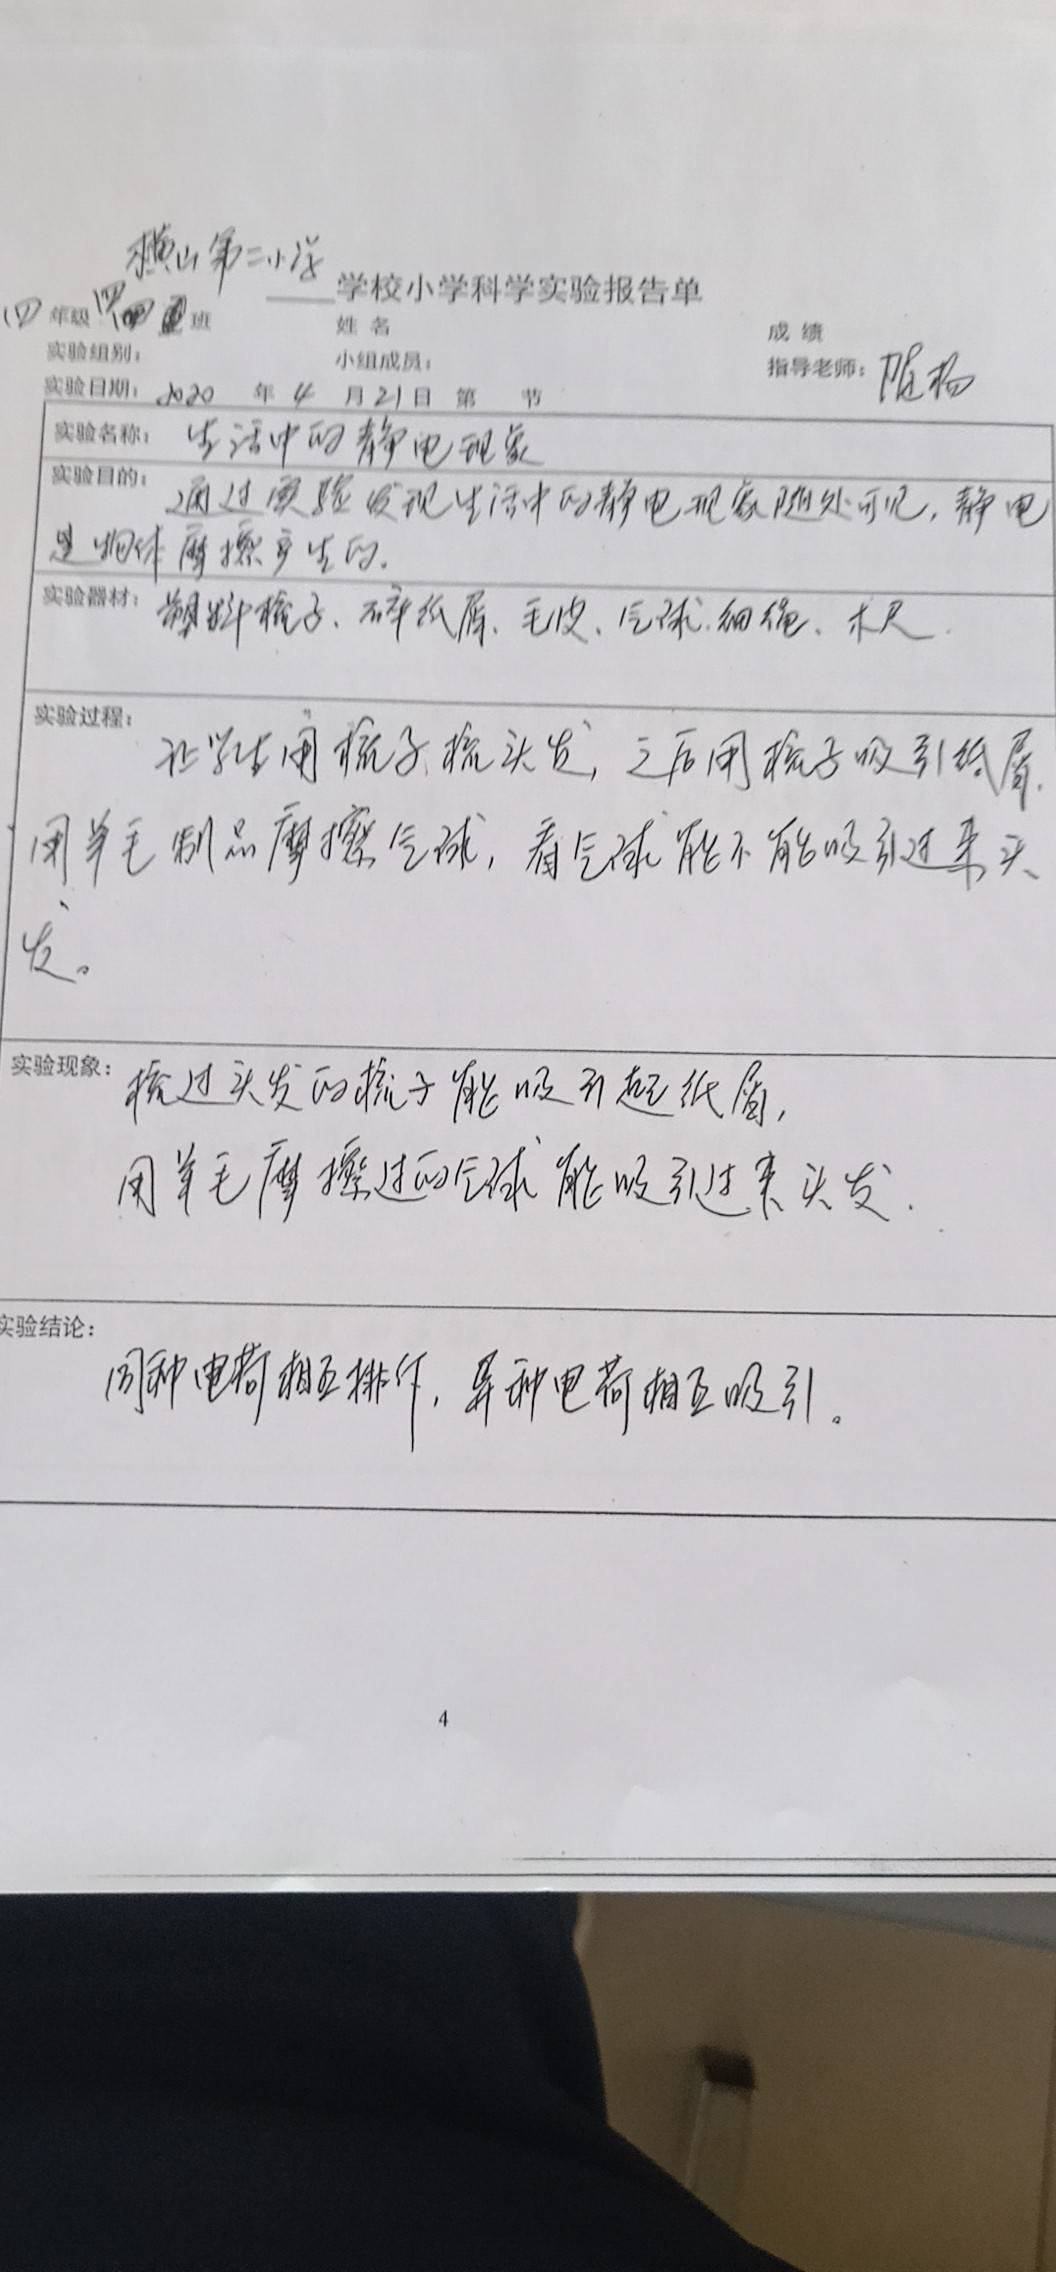 横山第二小学
学校小学科学实验报告单
四年级 班 姓名 成绩
实验组别： 小组成员： 指导老师：陈杨
实验日期：2020 年 4 月 21 日 第 节
实验名称：生活中的静电现象
实验目的：通过实验发现生活中的静电现象随处可见，静电
是物体摩擦产生的.
实验器材：塑料梳子、碎纸屑、毛皮、气球.细绳、木尺.
实验过程：
让学生用梳子梳头发，之后用梳子吸引纸屑.
用羊毛制品摩擦气球，看气球能不能吸引过来头
发。
实验现象：梳过头发的梳子能吸引起纸屑，
用羊毛摩擦过的气球能吸引过来头发.
实验结论：
同种电荷相互排斥，异种电荷相互吸引。
4